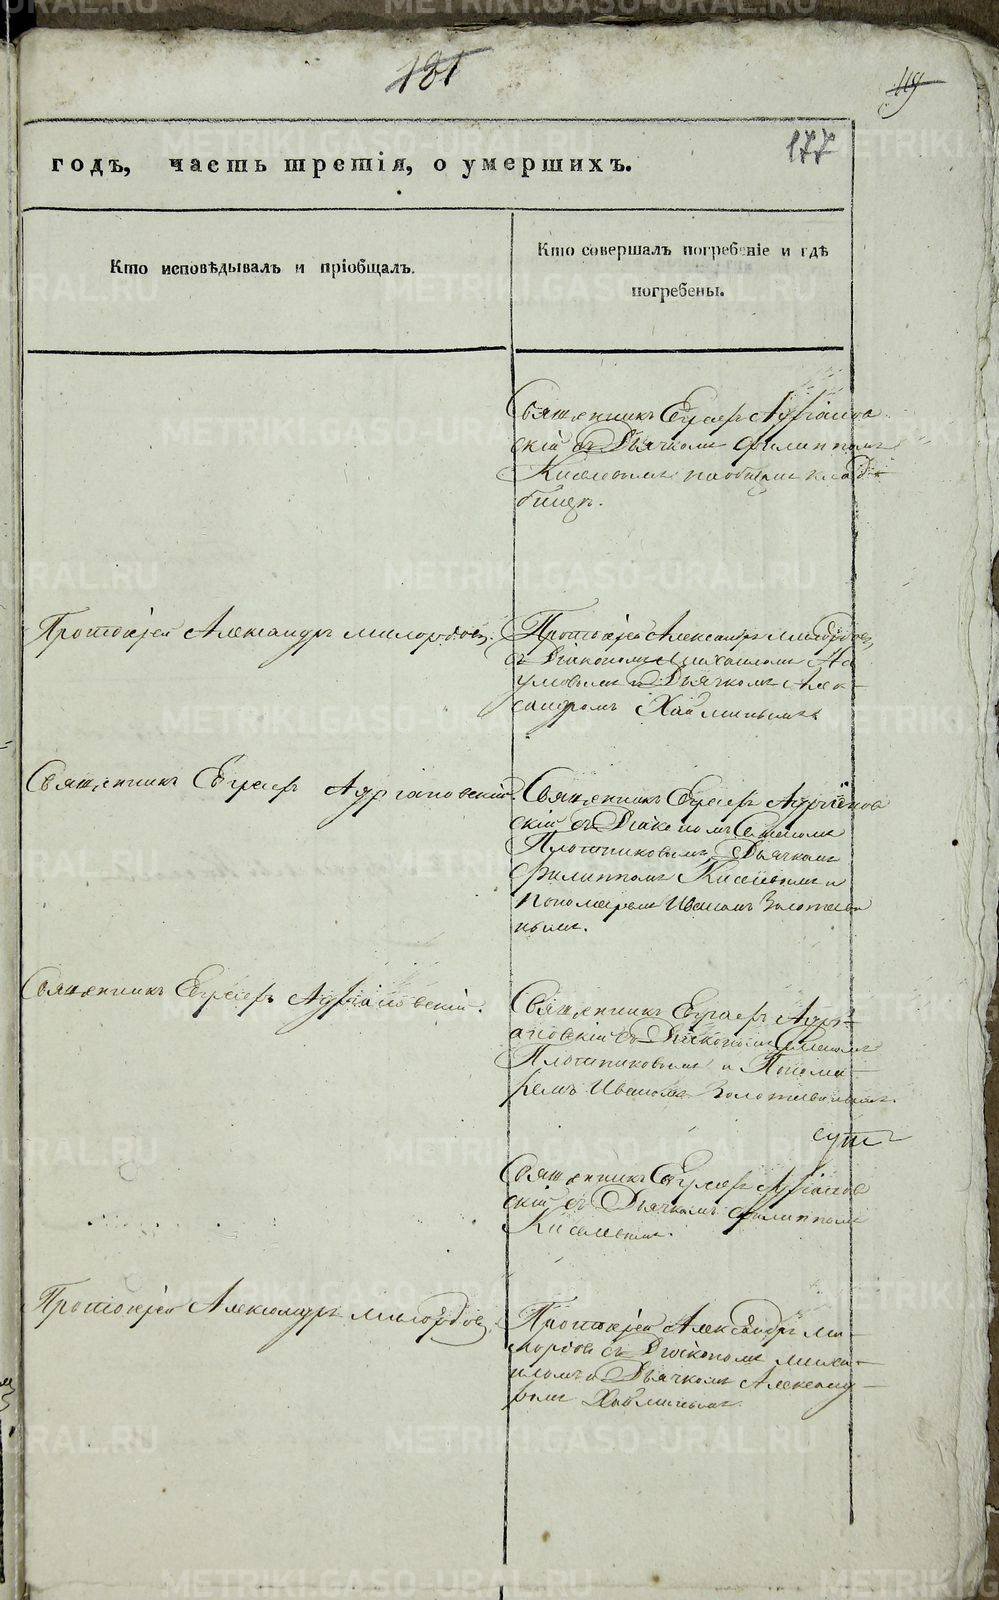 181
119
177
годъ, часть третія, о умершихъ.
Кто исповѣдывалъ и пріобщалъ.
Кто совершалъ погребеніе и гдѣ
погребены.
Священникъ Евграфъ Адріанов
скій съ Дьячкомъ Филиппомъ
Киселевымъ на общемъ клад
бищѣ.
Протоіерей Александръ Милордовъ.
Протоіерей Александръ Милордовъ
съ Діакономъ Михаиломъ На
умовымъ и Дьячкомъ Алек-
сандромъ Хайминымъ
Священникъ Евграфъ Адріановскій.
Священникъ Евграфъ Адріанов
скій съ Діакономъ Симеономъ
Плотниковымъ, Дьячкомъ
Филиппомъ Киселевымъ и
пономаремъ Иваномъ Золотави
нымъ.
Священникъ Евграфъ Адріановскій.
Священникъ Евграфъ Адрі-
ановскій съ Діакономъ Симеономъ
Плотниковымъ и Понома-
ремъ Иваномъ Золотавинымъ.
Священникъ Евграфъ Адріанов
скій съ Дьячкомъ Филиппомъ
Киселевымъ.
Протоіерей Александръ Милордовъ.
Протоіерей Александръ Ми-
лордовъ съ Діакономъ Миха-
иломъ и Дьячкомъ Александ-
ромъ Хайминымъ.
METRIKI.GASO-URAL.RU